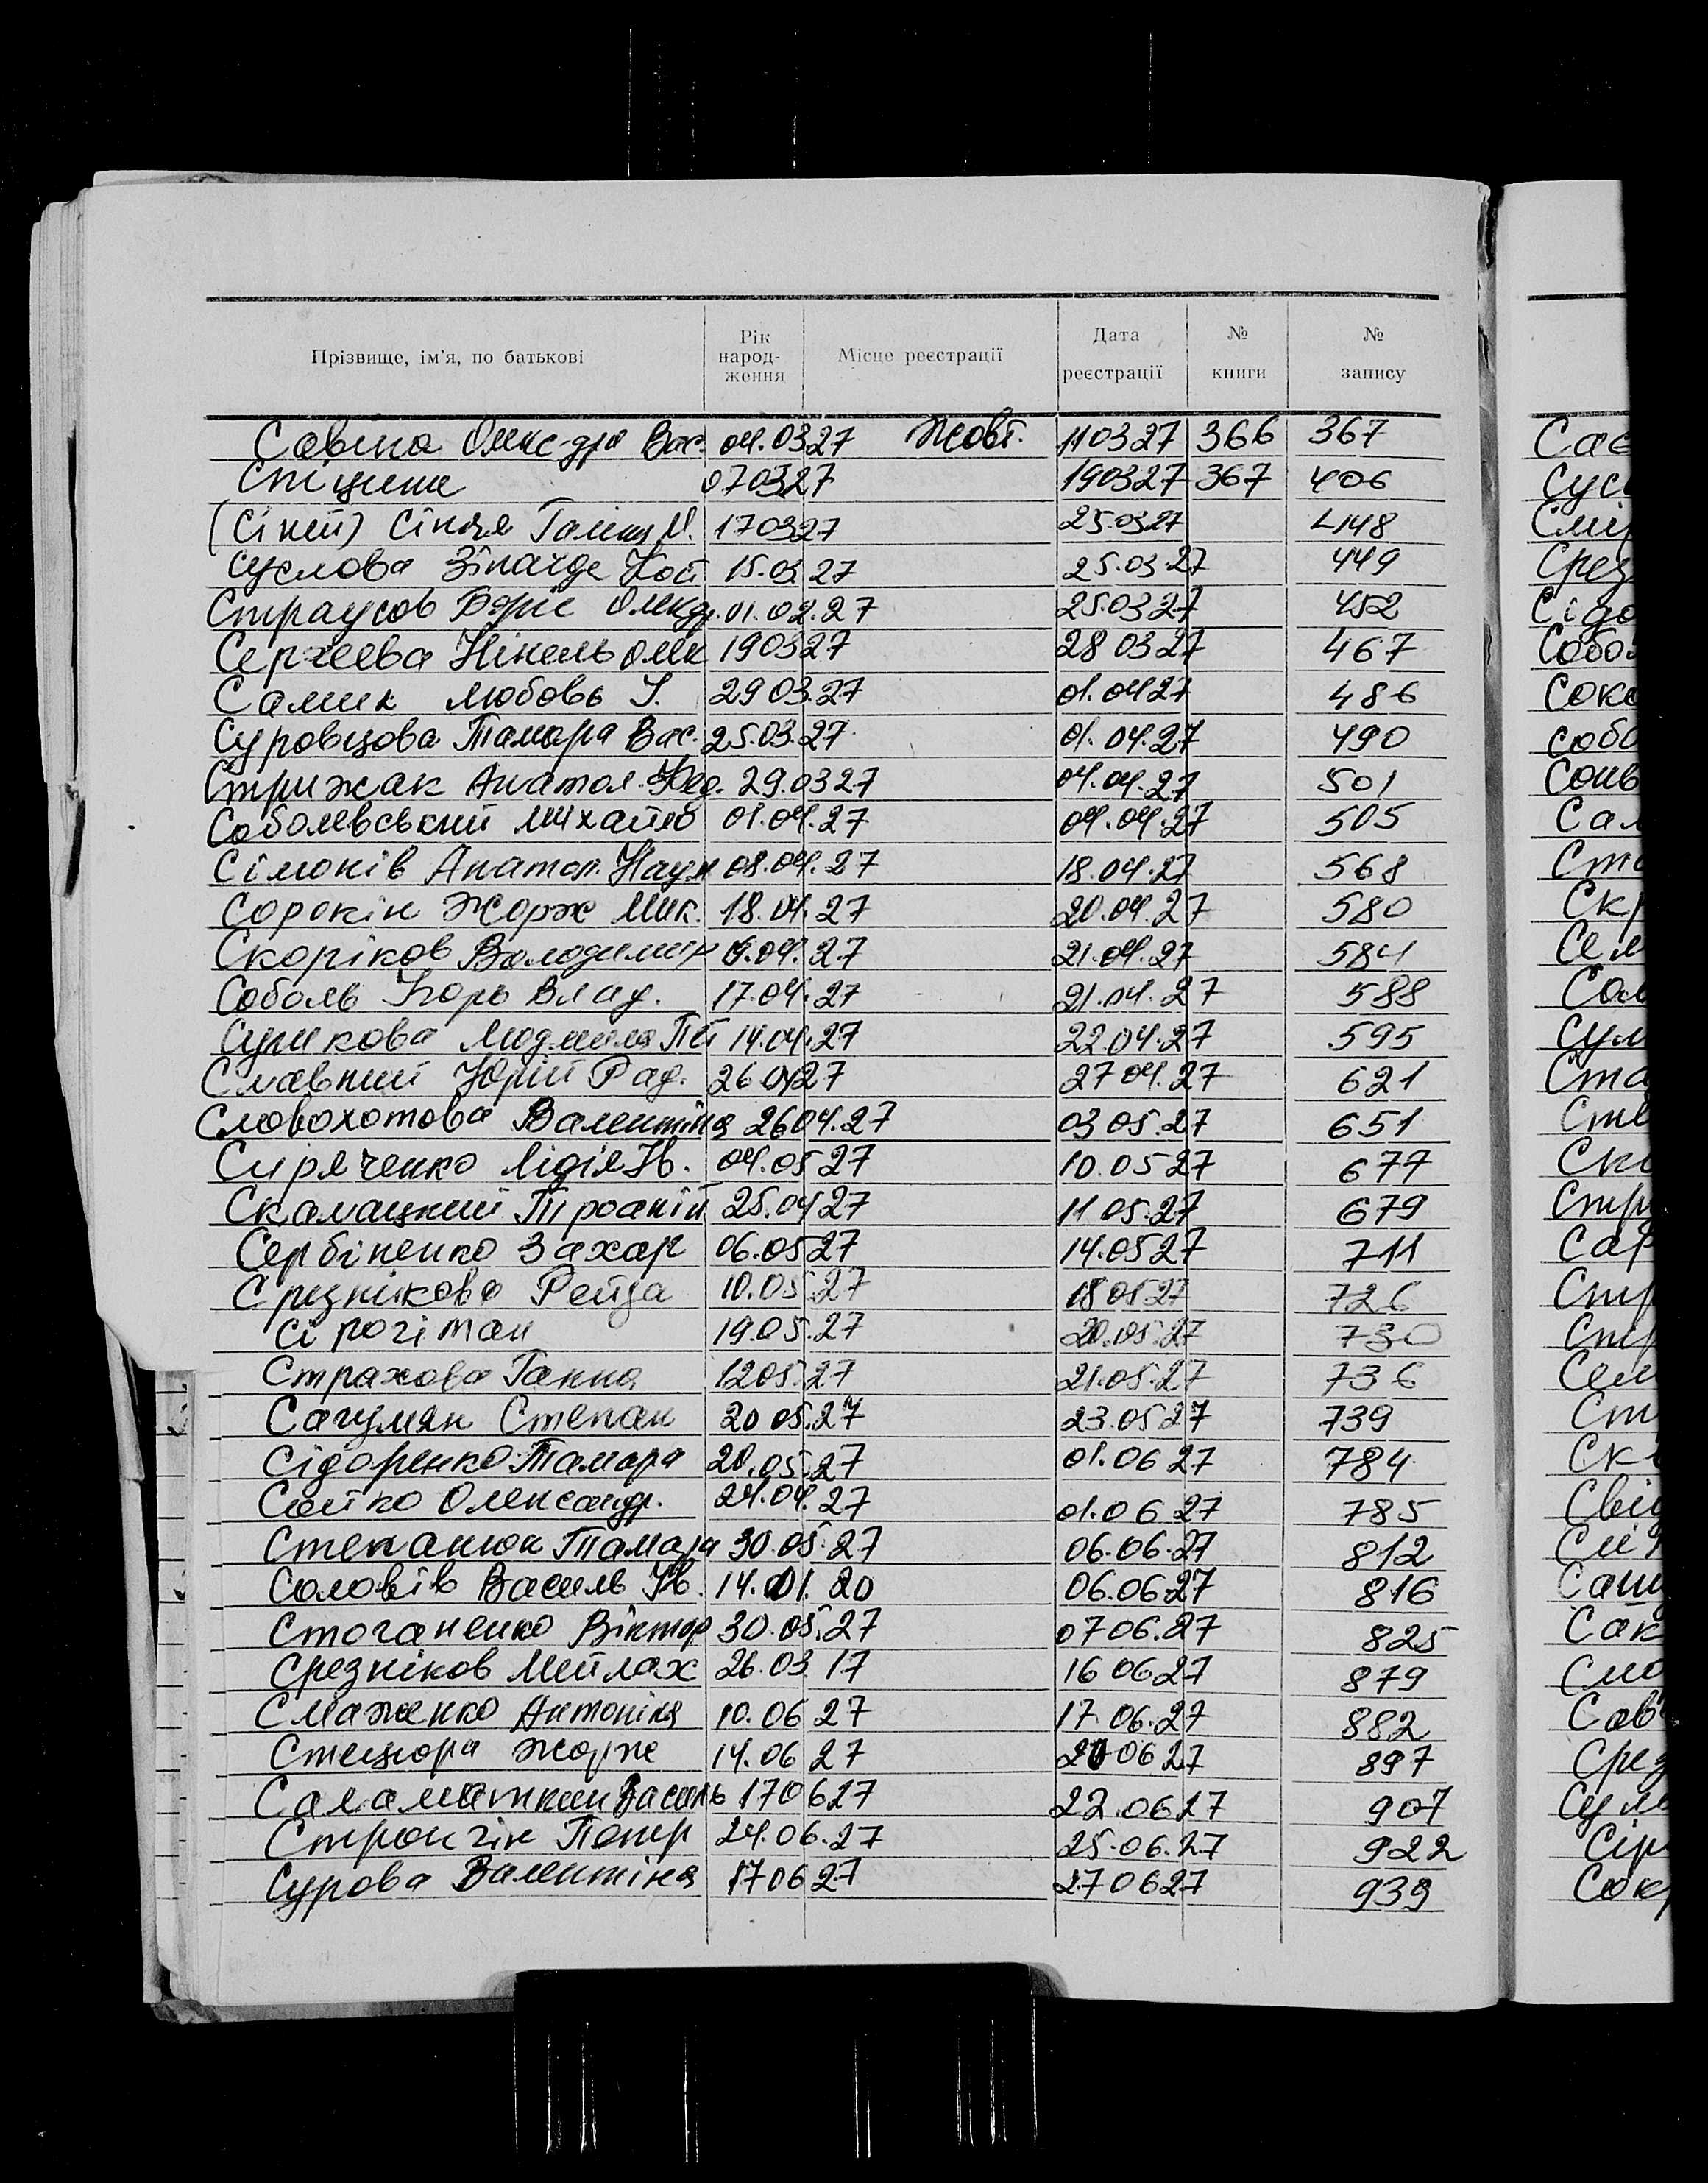 Прізвище, ім'я, по батькові Рік народ-ження Місце реєстрації Дата реєстрації № книги № запису
Савіна Олекс-дра Вас. 04.03.27 Жовт. 11 03 27 366 367
Спіцина 07 03 27 19 03 27 367 406
(Сіней) Сіняя Галина М. 17 03 27 25.03.27 448
Суслова Зінаїда Кост 15.03 27 25.03.27 449
Страусов Борис Олекдр. 01.02.27 25.03 27 452
Сергеева Нінель Олек 19 03 27 28 03 27 467
Самик Любовь І. 29 03.27 01.04 27 486
Суровцова Тамара Вас. 25.03.27. 01.04.27 490
Стрижак Анатол. Фед. 29.03 27 04.04.27 501
Соболевський Михайло 01.04.27 04.04.27 505
Сімонів Анатол. Наум 08.04.27 18.04.27 568
Сорокін Жорж Мик. 18.04.27 20.04.27 580
Скоріков Володимир 9.04.27 21.04.27 584
Соболь Ігорь Влад. 17.04.27 21.04.27 588
Сурикова Людмила 14.04.27 22.04.27 595
Славний Юрій Рад. 26 04 27 27 04.27 621
Словохотова Валентіна 26 04.27 03 05.27 651
Сиряченко Лідія Ів. 04.05 27 10.05 27 677
Скамацкий 25.04 27 11 05.27 679
Сербіненко Захар 06.05 27 14.05 27 711
Срезнікова Рейза 10.05.27 18 05 27 726
Сірогіман 19.05.27 20.05.27 730
Страхова Ганна 12 05.27 21.05.27 736
Сагумян Степан 20 05.27 23.05 27 739
Сідоренко Тамара 20.05.27 01.06 27 784
Сойко Олександр. 24.04.27 01.06 27 785
Степанюк Тамара 30.05.27 06.06.27 812
Соловів Василь Ів. 14.01.20 06.06 27 816
Стоганенко Віктор 30.05.27 07 06.27 825
Срезніков Мейлах 26.03 17 16 06 27 879
Смаженко Антоніна 10.06 27 17.06.27 882
Стецюра Жорж 14.06 27 20 06 27 897
Саламаткин Василь 17 06 27 22.06 27 907
Стронгін Петр 24.06.27 25.06.27 922
Сурова Валентіна 17 06 27 27 06 27 939